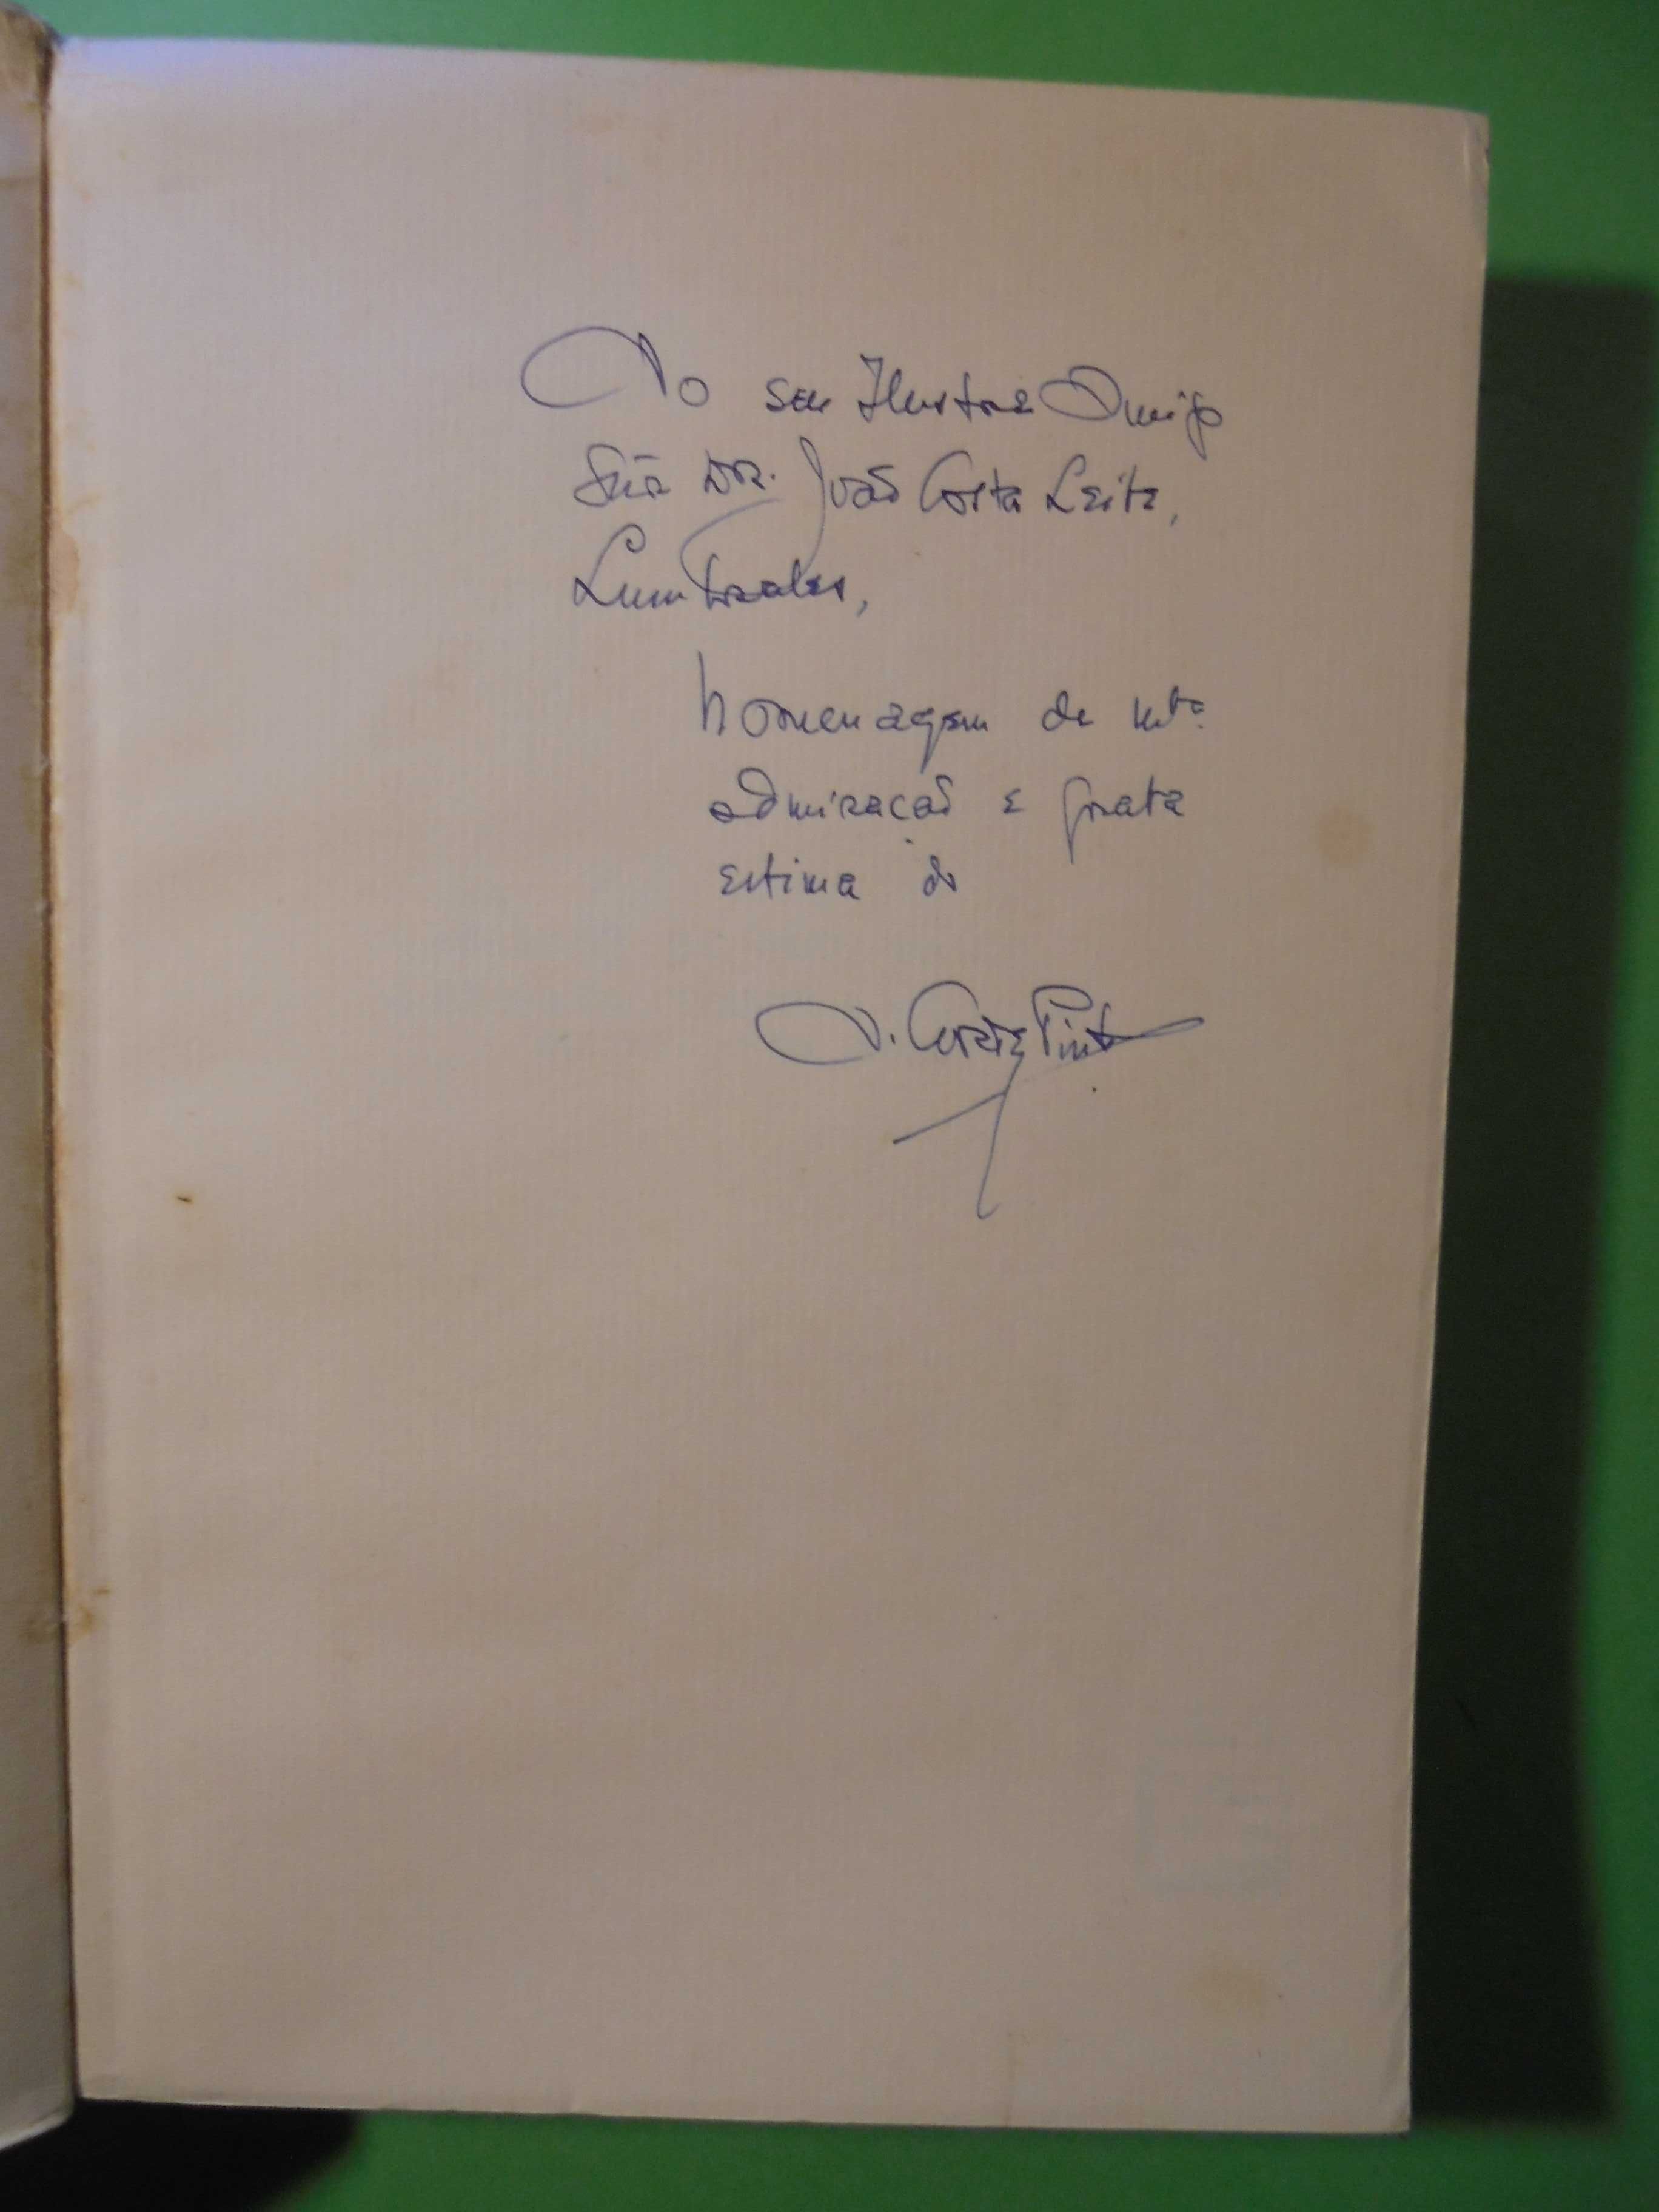 Ao seu Ilustre Amigo
Snr Dor. João Costa Leite,
Lumbrales,
homenagem de mta
admiração e grata
estima do
A. Cortez Pinto